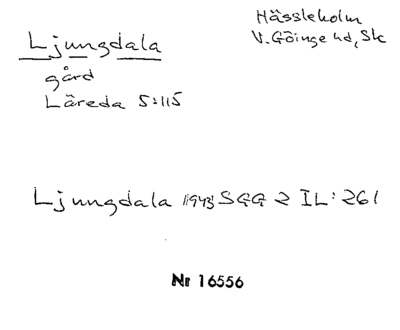 Ljungdala
gård
Läreda 5:115
Hässleholm
V. Göinge hd, Sk
Ljungdala 1943 SGG 2 IL: 261
Nr 16556